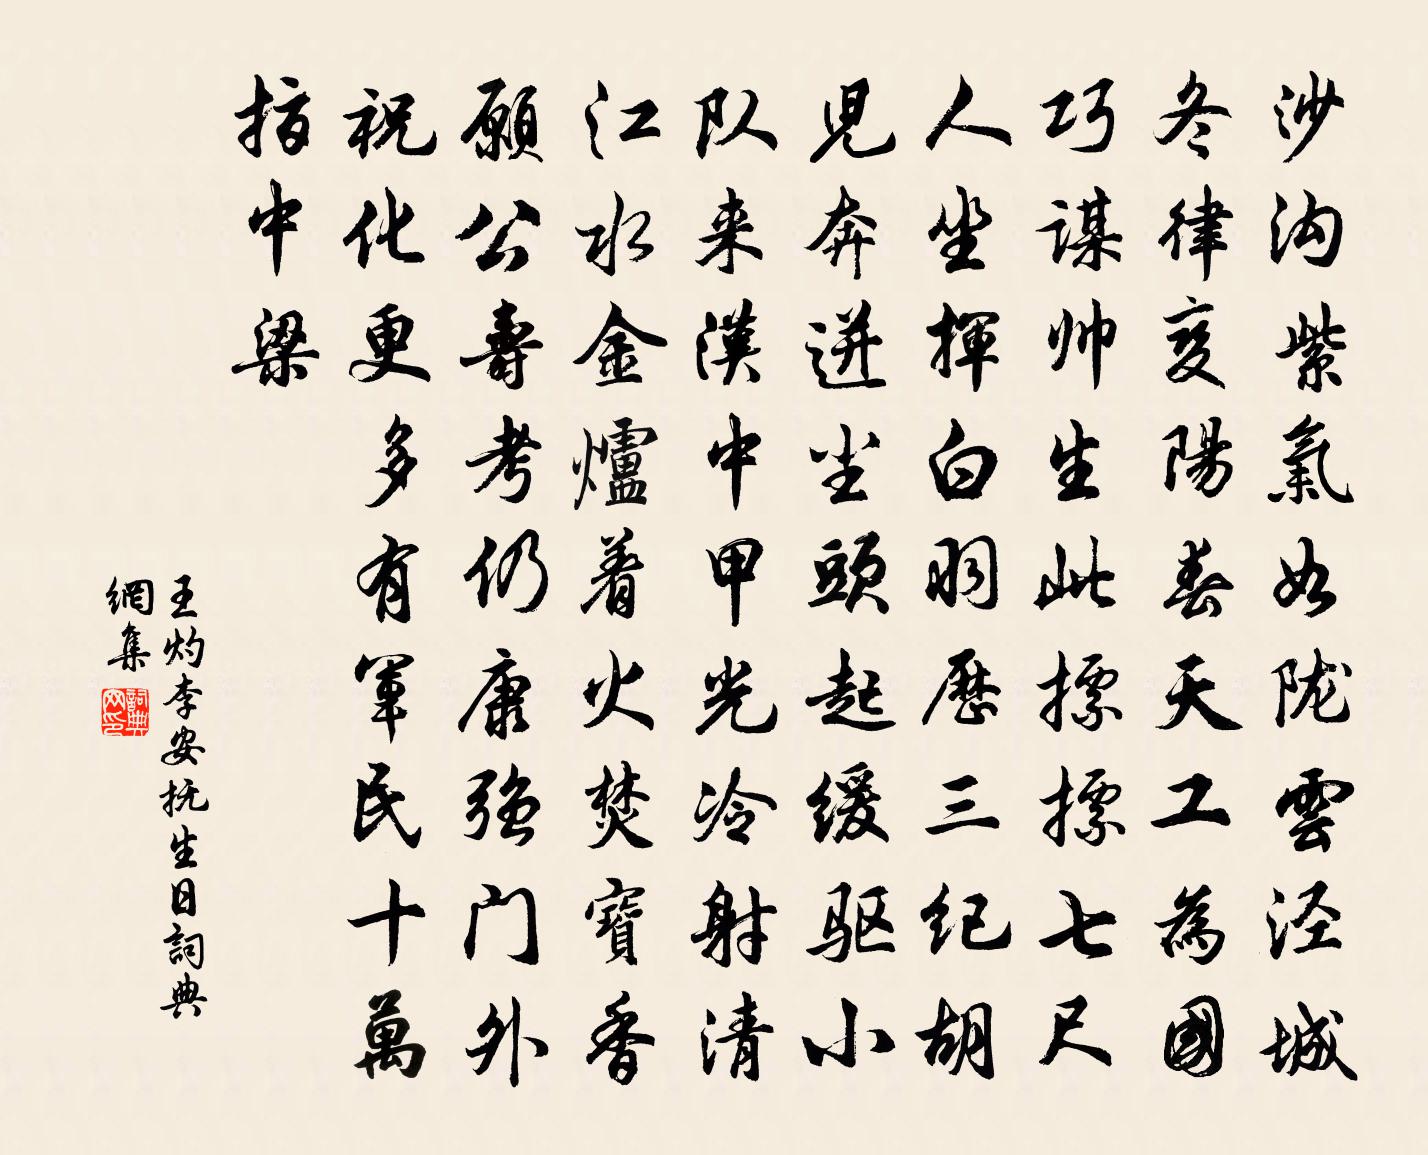 沙沟紫氣如陇雲泾城
冬律变陽春天工為國
巧謀帅生此摽摽七尺
人坐揮白羽歷三纪胡
兒奔迸尘頭起缓驱小
队来漢中甲光冷射清
江水金爐着火焚寶香
願公壽考仍康强门外
祝化更多有軍民十萬
指中梁
王灼李安抚生日詞典
網集
詞典網印